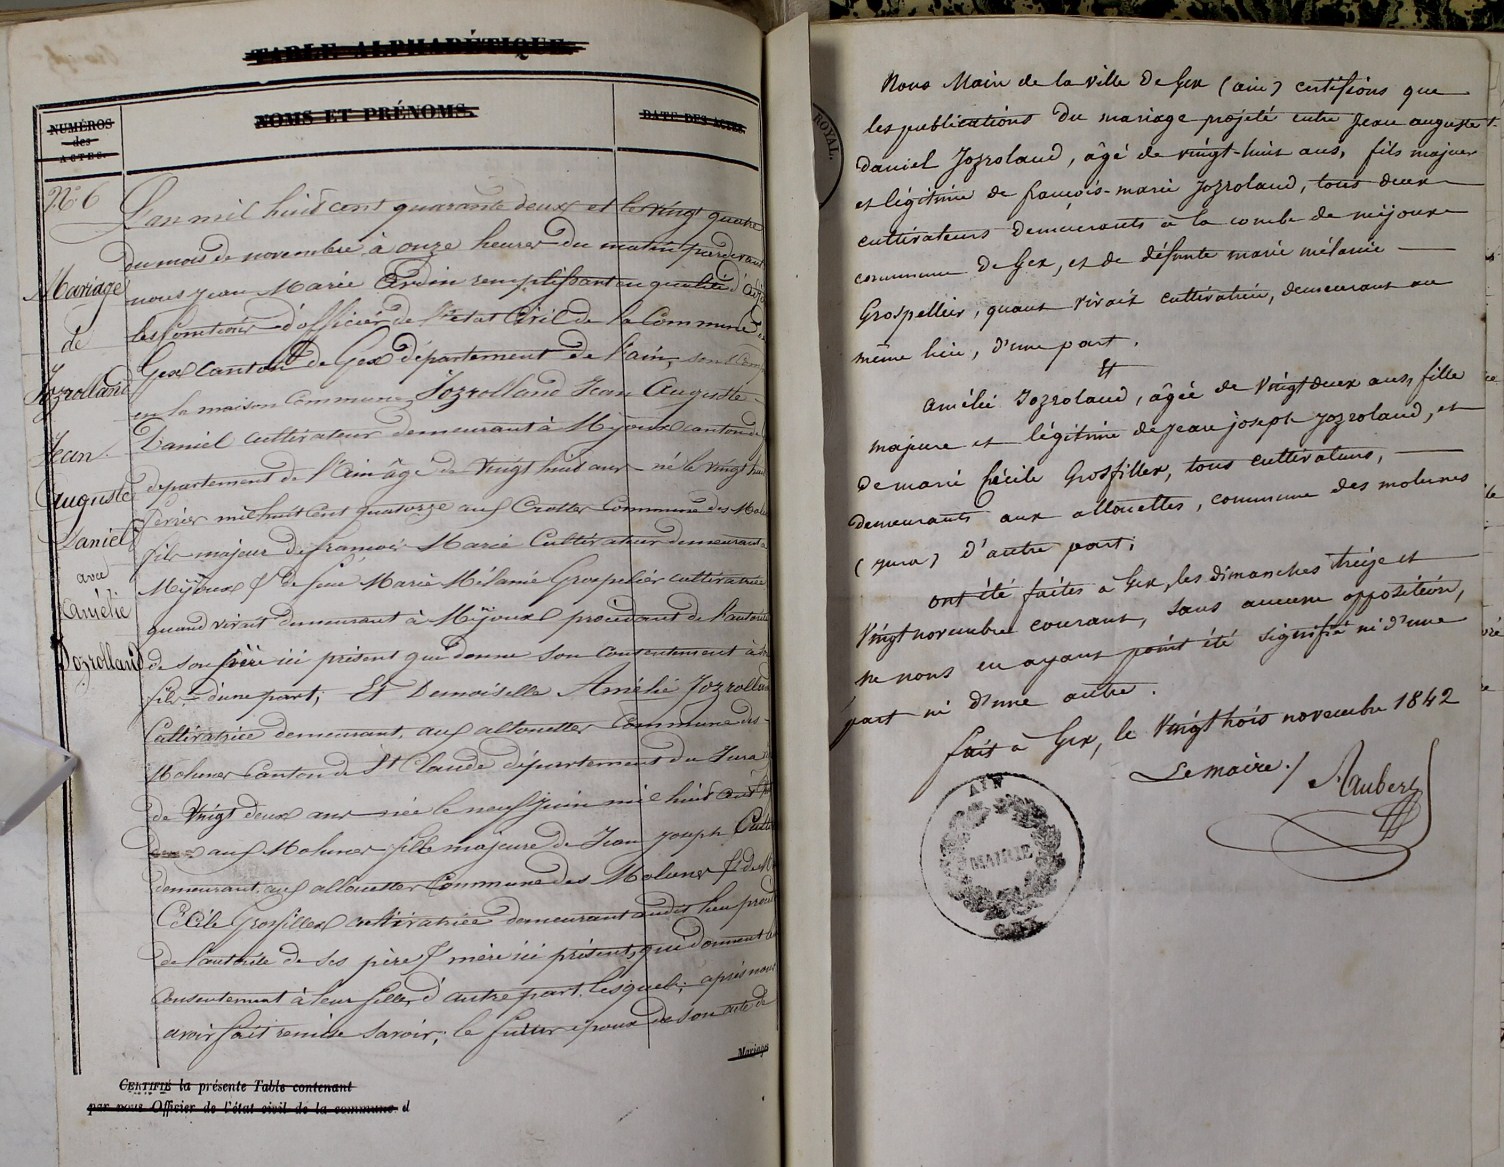 TABLE ALPHABÉTIQUE.
NUMÉROS
des
ACTES.
NOMS ET PRÉNOMS.
DATE DES ACTES.
N° 6
Mariage
de
Jozrolland
Jean
Auguste
Daniel
avec
Amélie
Jozrolland
L'an mil huit cent quarante deux et le vingt quatre
du mois de novembre à onze heures du matin pardevant
nous Jean Marie Ardin remplissant en qualité d'adj
les fonctions d'officier de l'état Civil de la Commune de
Gex Canton de Gex département de l'ain,
en la maison Commune, Jozrolland Jean Auguste
Daniel cultivateur demeurant à Mijoux canton de
département de l'Ain âgé de vingt huit ans né le vingt huit
février mil huit cent quatorze aux Crottes Commune des Molu
fils majeur de françois Marie Cultivateur demeurant à
Mijoux & de feue Marie Mélanie Grospelier cultivatrice
quand vivait demeurant à Mijoux procédant de l'autorité
de son père ici présent qui donne son consentement à
fils d'une part; Et Demoiselle Amélie Jozrolland
Cultivatrice demeurant aux allouettes Commune des
Molunes Canton de St Claude département du Jura
de vingt deux ans née le neuf juin mil huit cent
aux Molunes fille majeure de Jean joseph Cult
demeurant aux allouettes Commune des Molunes & de M
Cécile Grosfillex cultivatrice demeurant audit lieu procéd
de l'autorité de ses père & mère ici présent, qui donnent
Consentement à leur fille d'autre part. lesquels, après nous
avoir fait remise savoir; le futur époux de son acte de
Mariage
CERTIFIÉ la présente Table contenant
par nous Officier de l'état civil de la commune d
ROYAL.
Nous Maire de la ville de Gex (ain) certifions que
les publications du mariage projeté entre Jean auguste
daniel Jozroland, âgé de vingt-huit ans, fils majeur
et légitime de françois-marie Jozroland, tous deux
cultivateurs demeurants à la combe de mijoux
commune de Gex, et de défunte marie mélanie
Grospellier, quant vivait cultivatrice, demeurant au
même lieu, d'une part.
Et
amélie Jozroland, âgée de vingt deux ans, fille
majeure et légitime de jean joseph Jozroland, et
de marie Cécile Grosfillex, tous cultivateurs,
demeurants aux allouettes, commune des molunes
(jura) d'autre part;
ont été faites à Gex, les dimanches treize et
vingt novembre courant, sans aucune opposition,
ne nous en ayant point été signifié ni d'une
part ni d'une autre.
fait à Gex, le vingt trois novembre 1842
Le maire./
AIN
MAIRIE
GEX